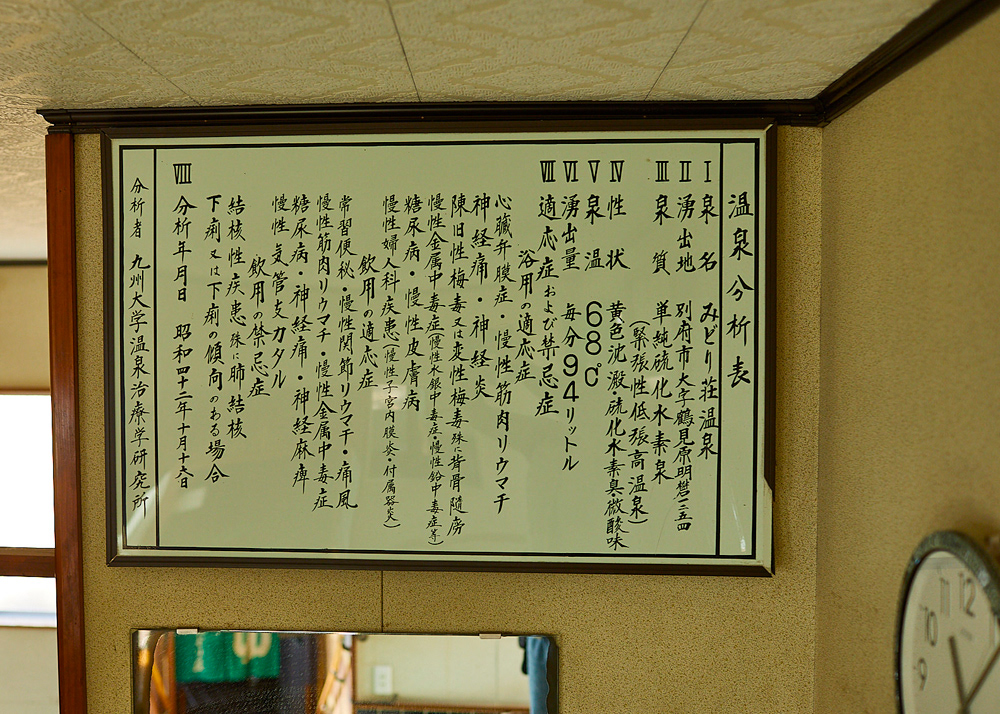 温泉分析表
Ⅰ 泉名 みどり荘温泉
Ⅱ 湧出地 別府市大字鶴見原明礬一二五四
Ⅲ 泉質 単純硫化水素泉
(緊張性低張高温泉)
Ⅳ 性状 黄色沈澱・硫化水素臭微酸味
Ⅴ 泉温 68℃
Ⅵ 湧出量 毎分94リットル
Ⅶ 適応症および禁忌症
浴用の適応症
心臓弁膜症・慢性筋肉リウマチ
神経痛・神経炎
陳旧性梅毒又は変性梅毒殊に脊骨隨癆
慢性金属中毒症(慢性水銀中毒症・慢性鉛中毒症等)
糖尿病・慢性皮膚病
慢性婦人科疾患(慢性子宮内膜炎・付属器炎)
飲用の適応症
常習便秘・慢性関節リウマチ・痛風
慢性筋肉リウマチ・慢性金属中毒症
糖尿病・神経痛・神経麻痺
慢性気管支カタル
飲用の禁忌症
結核性疾患殊に肺結核
下痢又は下痢の傾向のある場合
Ⅷ 分析年月日 昭和四十二年十月十六日
分析者 九州大学温泉治療学研究所
11
12
10
9
8